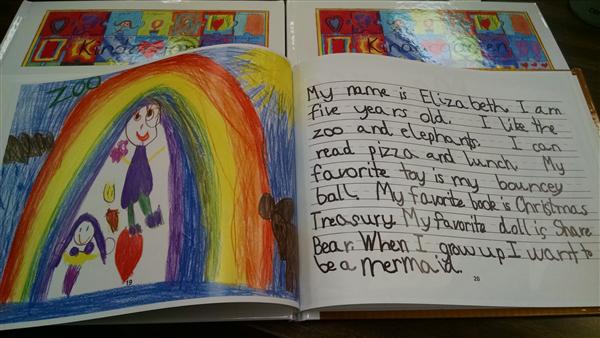 Kindergarten
Kindergarten
ZOO
My name is Elizabeth. I am
five years old. I like the
zoo and elephants. I can
read pizza and lunch. My
favorite toy is my bouncey
ball. My favorite book is Christmas
Treasury. My favorite doll is Share
Bear. When I grow up I want to
be a mermaid.
19
20